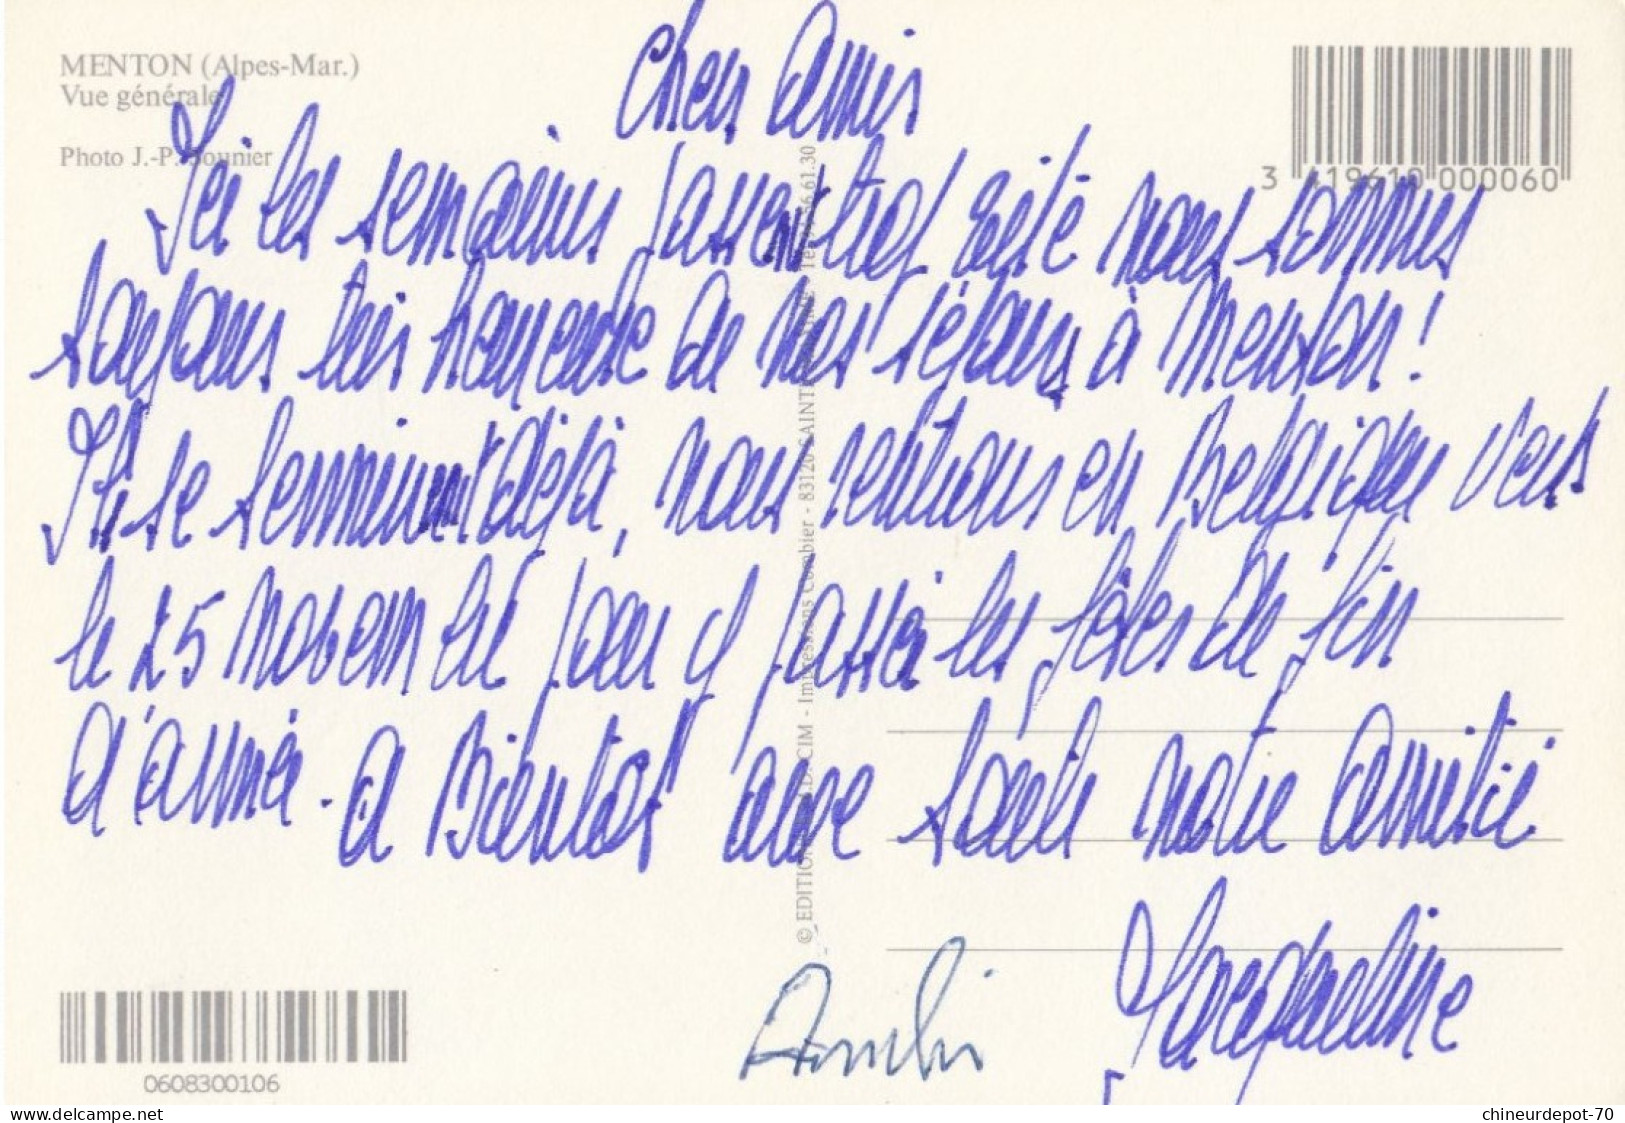 MENTON (Alpes-Mar.)
Vue générale
Photo J.-P.
3 419610 000060
Chers Amis
Ici les semaines passent très vite nous sommes
toujours très heureux de nos séjours à Menton!
Ils se terminent déjà, nous rentrons en Belgique vers
le 25 novembre pour y passer les fêtes de fin
d'année. A Bientôt avec toute notre amitié
Jacqueline
© EDITIONS CIM - Impressions Combier - 83120 SAINTE
0608300106
www.delcampe.net
chineurdepot-70